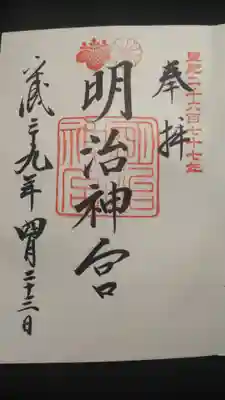 皇紀二千六百七十七年
奉拝
明治神宮
平成二九年四月二十三日